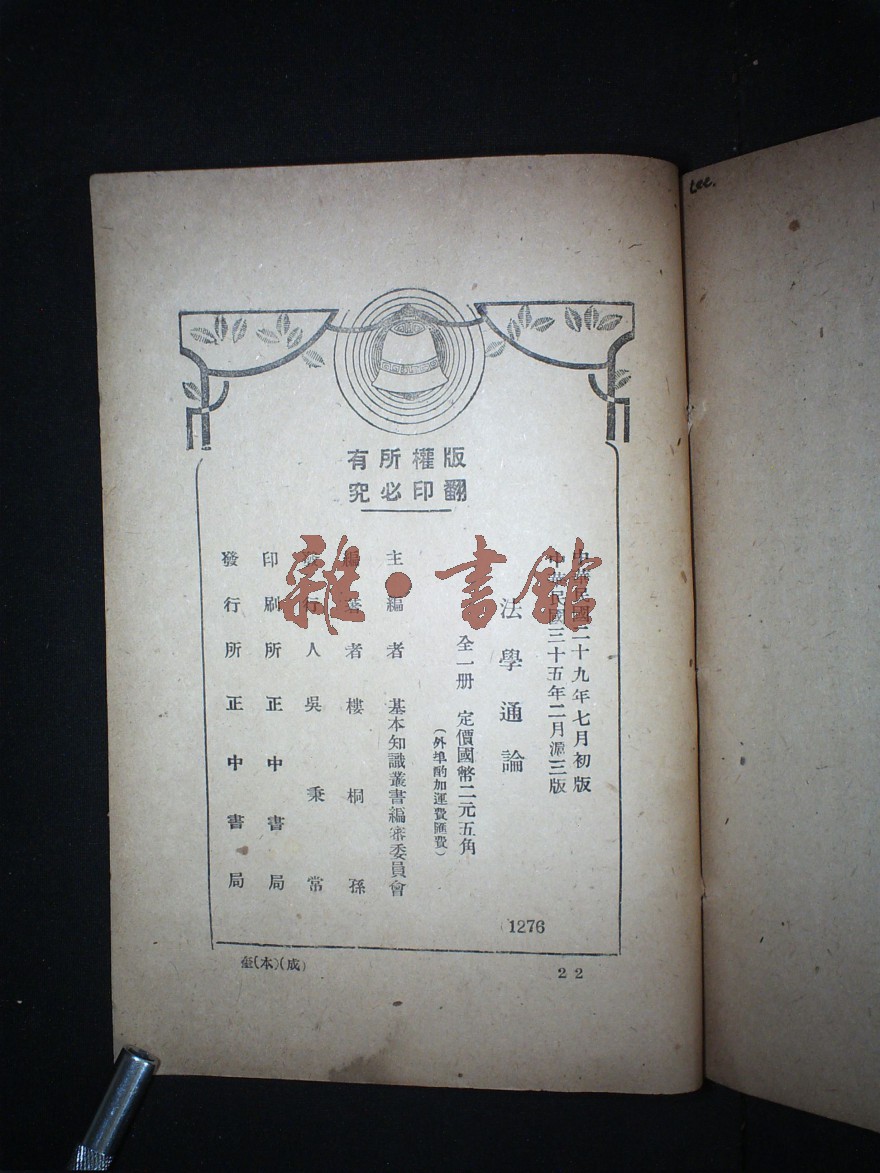 版權所有
翻印必究
中華民國二十九年七月初版
中華民國三十五年二月滬三版
法學通論
全一册 定價國幣二元五角
(外埠酌加運費匯費)
主編者 基本知識叢書編審委員會
編著者 樓桐孫
發行人 吳秉常
印刷所 正中書局
發行所 正中書局
1276
(成)(本)
22
雜·書館
Lee.